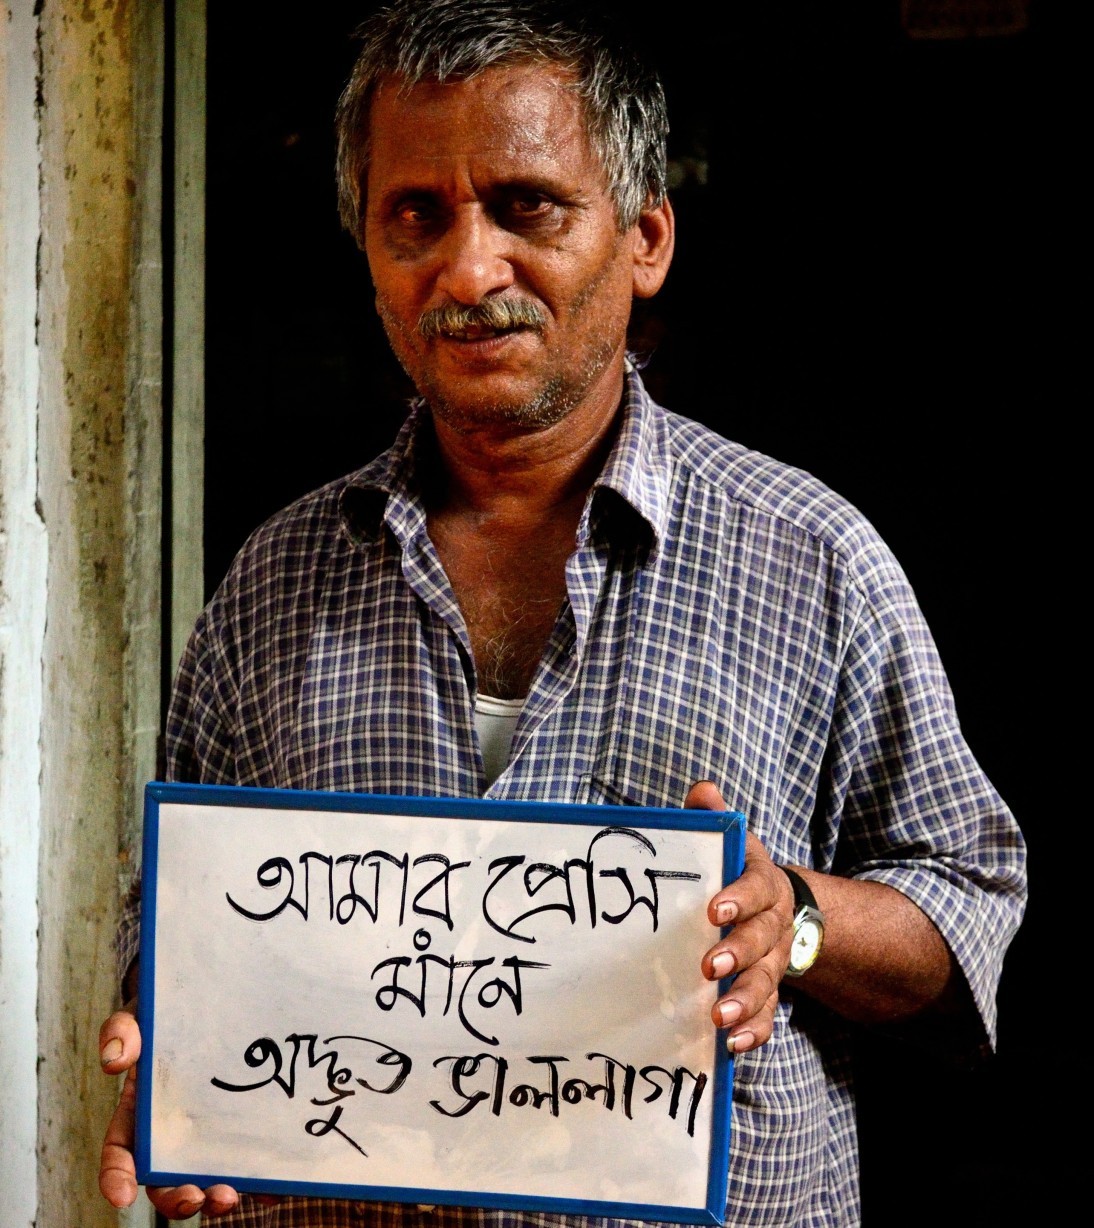 আমার প্রেসি
মানে
অদ্ভুত ভাললাগা